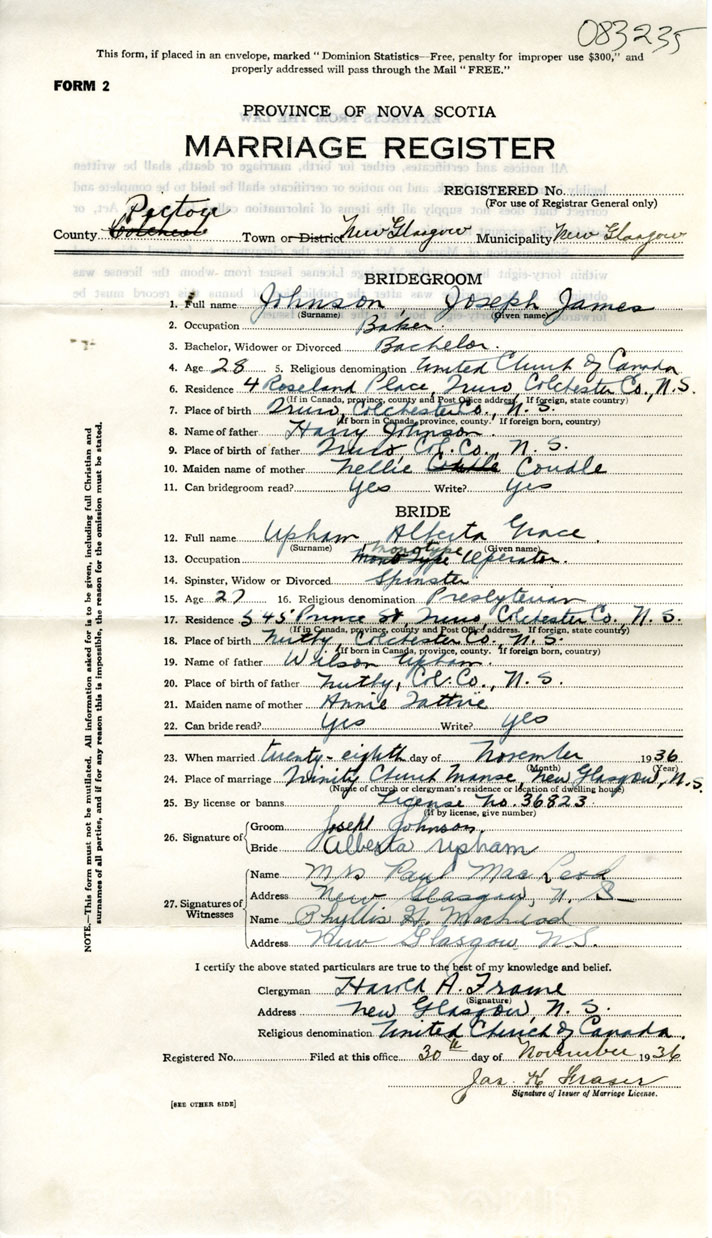 083235
This form, if placed in an envelope, marked "Dominion Statistics—Free, penalty for improper use $300," and
properly addressed will pass through the Mail "FREE."
FORM 2
PROVINCE OF NOVA SCOTIA
MARRIAGE REGISTER
REGISTERED No.
(For use of Registrar General only)
Pictou
County Colchester Town or District New Glasgow Municipality New Glasgow
BRIDEGROOM
1. Full name Johnson, Joseph James
(Surname) (Given name)
2. Occupation Baker.
3. Bachelor, Widower or Divorced Bachelor.
4. Age 28 5. Religious denomination United Church of Canada
6. Residence 4 Roseland Place, Truro Colchester Co., N.S.
(If in Canada, province, county and Post Office address. If foreign, state country)
7. Place of birth Truro, Colchester Co., N.S.
(If born in Canada, province, county. If foreign born, country)
8. Name of father Harry Johnson.
9. Place of birth of father Truro, Col. Co., N.S.
10. Maiden name of mother Nellie Coudle
11. Can bridegroom read? Yes Write? Yes
BRIDE
12. Full name Upham Alberta Grace.
(Surname) (Given name)
monotype
13. Occupation Mono Type Operator.
14. Spinster, Widow or Divorced Spinster
15. Age 27 16. Religious denomination Presbyterian
17. Residence 545 Prince St Truro, Colchester Co., N.S.
(If in Canada, province, county and Post Office address. If foreign, state country)
18. Place of birth Nutby, Colchester Co., N.S.
(If born in Canada, province, county. If foreign born, country)
19. Name of father Wilson Upham.
20. Place of birth of father Nutby, Col. Co., N.S.
21. Maiden name of mother Annie Tattrie
22. Can bride read? Yes Write? Yes
23. When married twenty-eighth day of November 1936
(Month) (Year)
24. Place of marriage Trinity Church Manse, New Glasgow, N.S.
(Name of church or clergyman's residence or location of dwelling house)
25. By license or banns License No. 36823.
(If by license, give number)
26. Signature of
Groom Joseph Johnson.
Bride Alberta Upham
27. Signatures of Witnesses
Name Mrs Paul MacLeod
Address New Glasgow, N.S.
Name Phyllis H. MacLeod
Address New Glasgow N.S.
I certify the above stated particulars are true to the best of my knowledge and belief.
Clergyman Harold A. Frame
(Signature)
Address New Glasgow, N.S.
Religious denomination United Church of Canada.
Registered No. Filed at this office 30th day of November 1936
Jas. H Fraser
Signature of Issuer of Marriage License.
[SEE OTHER SIDE]
NOTE.—This form must not be mutilated. All information asked for is to be given, including full Christian and
surnames of all parties, and if for any reason this is impossible, the reason for the omission must be stated.